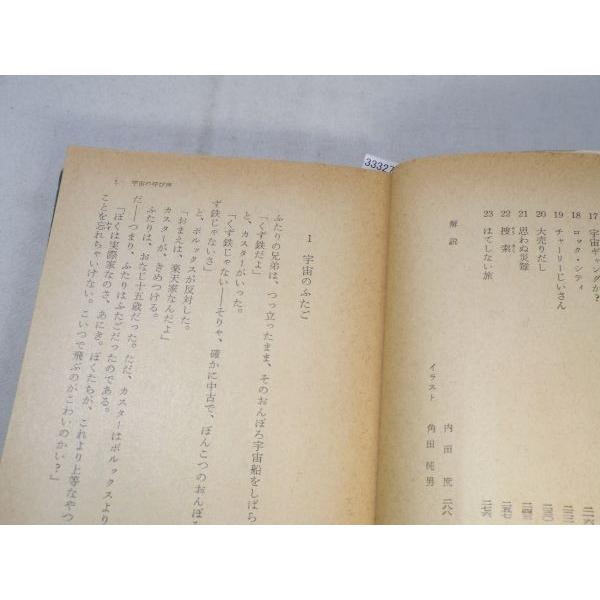 33327
17 宇宙ギャングか?
18 ロック・シティ
19 チャーリーじいさん
20 大売りだし
21 思わぬ災難
22 捜索
23 はてしない旅
解説
イラスト
内田庶
角田純男
二一六
二四三
二五七
二七六
二八八
5 宇宙の呼び声
1 宇宙のふたご
ふたりの兄弟は、つっ立ったまま、そのおんぼろ宇宙船をしばら
「くず鉄だよ」
カスターがいった。
「くず鉄じゃない――そりゃ、確かに中古で、ぽんこつのおんぼろ
ず鉄じゃないさ」
と、ポルックスが反対した。
「おまえは、楽天家なんだよ」
カスターが、きめつける。
ふたりは、おなじ十五歳だった。ただ、カスターはポルックスより
だ――つまり、ふたりはふたごだったのである。
「ぼくは実際家なのさ、あにき。ぼくたちが、これより上等なやつ
ことを忘れちゃいけない。こいつで飛ぶのがこわいのかい?」